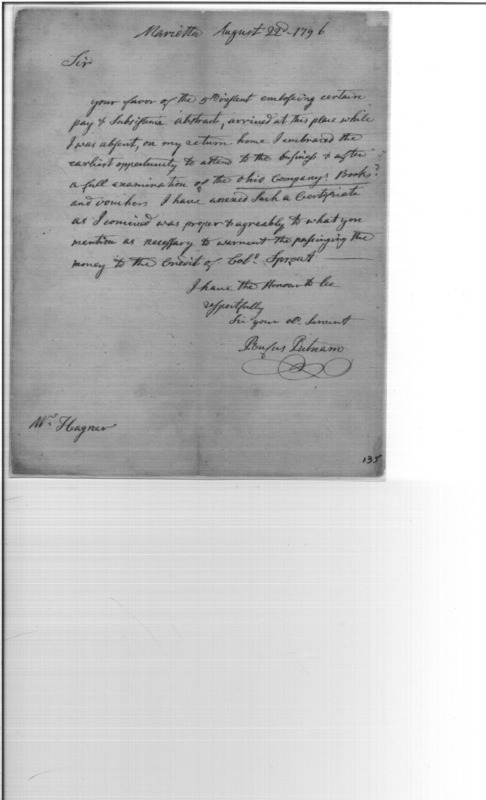 Marietta August 22d - 1796
Sir
your favor of the 5th instent embosing certain
pay & Subsistance abstracts, arrived at this place while
I was absent, on my return home I embraced the
earliest oppertunity to attend to the business & after
a full examination of the Ohio Companys Books
and vouchers I have anexed such a Certificate
as I conceived was proper & agreably to what you
mention as necessary to warrent the passinging the
money to the Credit of Colo. Sproat
I have the Honour to be
respectfully
Sir your ob. Servent
Rufus Putnam
Hagner
135